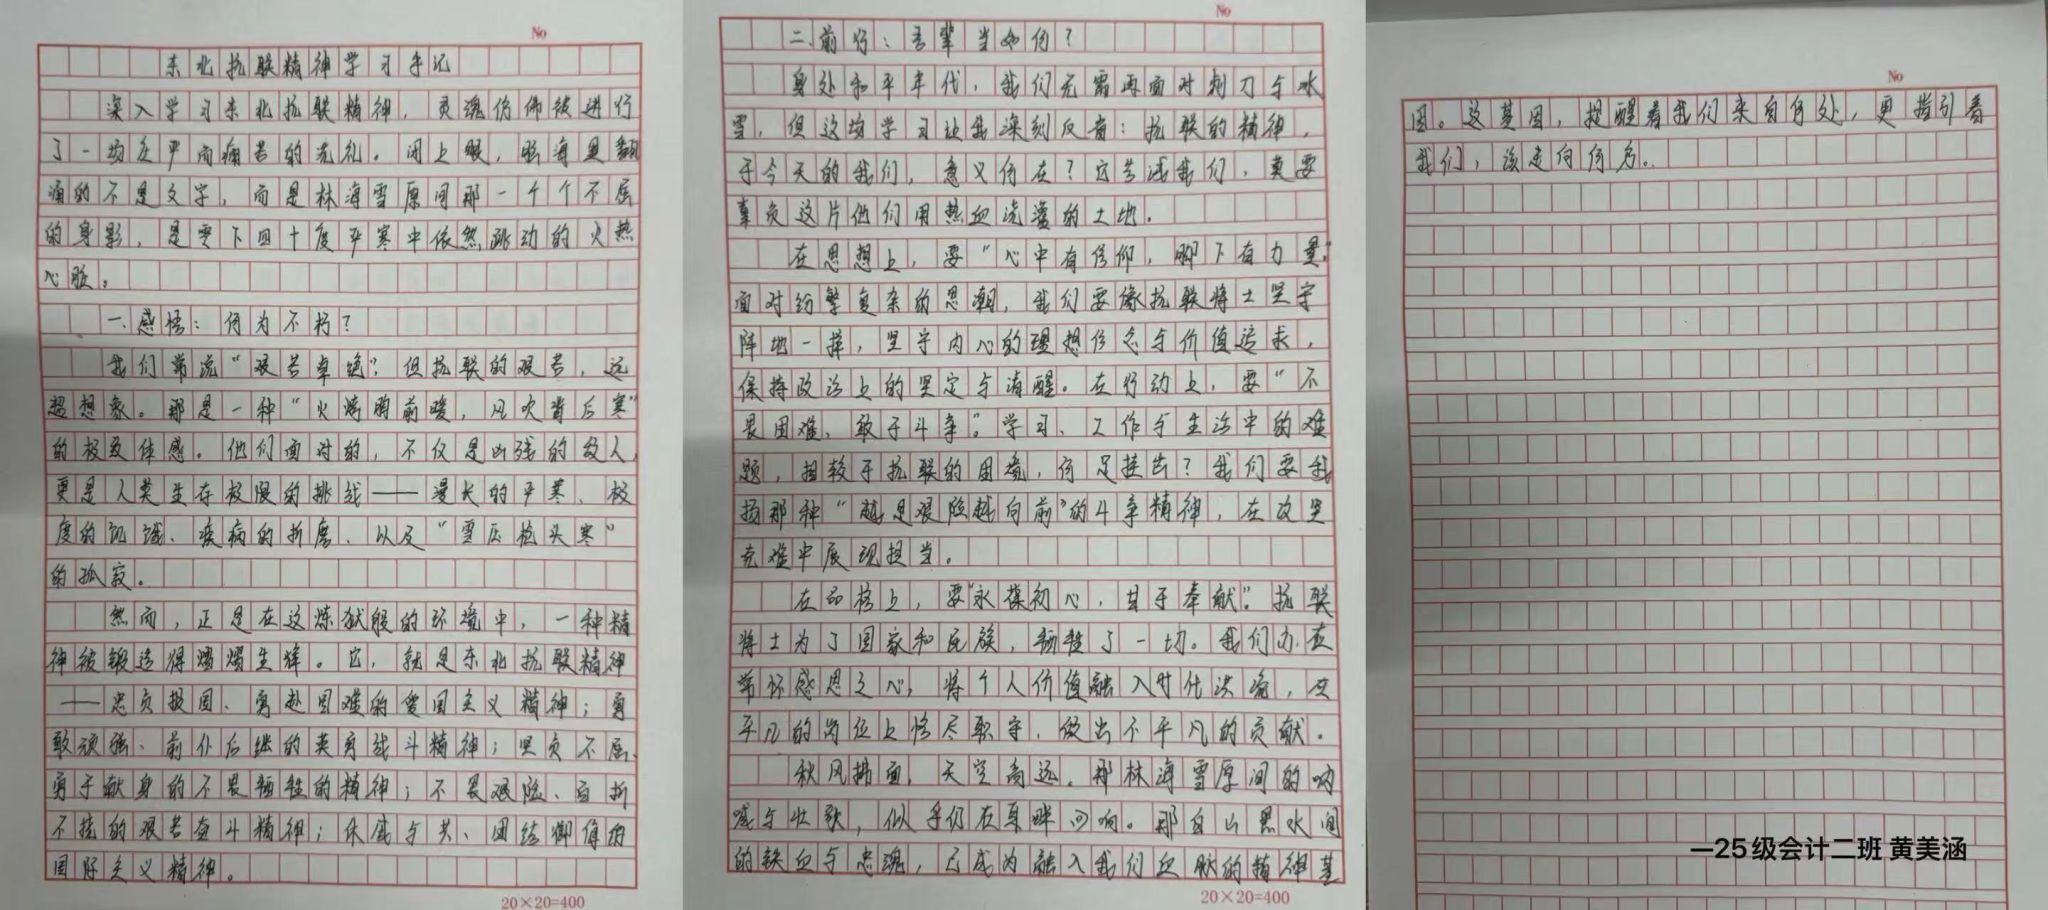 No
东北抗联精神学习手记
深入学习东北抗联精神，灵魂仿佛被进行
了一场庄严而痛苦的洗礼。闭上眼，脑海里翻
涌的不是文字，而是林海雪原间那一个个不屈
的身影，是零下四十度严寒中依然跳动的火热
心脏。
一、感悟：何为不朽？
我们常说“艰苦卓绝”，但抗联的艰苦，远
超想象。那是一种“火烤胸前暖，风吹背后寒”
的极致体感。他们面对的，不仅是凶残的敌人，
更是人类生存极限的挑战——漫长的严寒、极
度的饥饿、疾病的折磨、以及“雪压枪头寒”
的孤寂。
然而，正是在这炼狱般的环境中，一种精
神被锻造得熠熠生辉。它，就是东北抗联精神
——忠贞报国、勇赴国难的爱国主义精神；勇
敢顽强、前仆后继的英勇战斗精神；坚贞不屈、
勇于献身的不畏牺牲的精神；不畏艰险、百折
不挠的艰苦奋斗精神；休戚与共、团结御侮的
国际主义精神。
20×20=400
No
二、前行：吾辈当如何？
身处和平年代，我们无需再面对刺刀与冰
雪，但这场学习让我深刻反省：抗联的精神，
于今天的我们，意义何在？它告诫我们，莫要
辜负这片他们用热血浇灌的土地。
在思想上，要“心中有信仰，脚下有力量”
面对纷繁复杂的思潮，我们要像抗联将士坚守
阵地一样，坚守内心的理想信念与价值追求，
保持政治上的坚定与清醒。在行动上，要“不
畏困难、敢于斗争”。学习、工作与生活中的难
题，相较于抗联的困境，何足挂齿？我们要发
扬那种“越是艰险越向前”的斗争精神，在攻坚
克难中展现担当。
在品格上，要“永葆初心，甘于奉献”。抗联
将士为了国家和民族，牺牲了一切。我们亦应
常怀感恩之心，将个人价值融入时代洪流，在
平凡的岗位上恪尽职守，做出不平凡的贡献。
秋风拂面，天空高远。那林海雪原间的呐
喊与壮歌，似乎仍在耳畔回响。那白山黑水间
的铁血与忠魂，已成为融入我们血脉的精神基
20×20=400
No
因。这基因，提醒着我们来自何处，更指引着
我们，该走向何方。
—25级会计二班 黄美涵